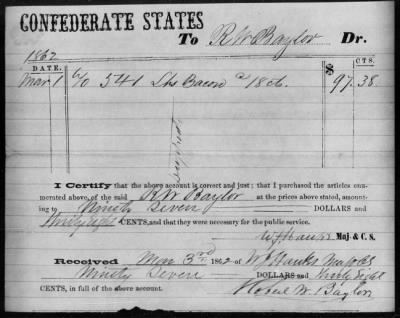 CONFEDERATE STATES
To R W Baylor Dr.
1862
DATE. $ CTS.
Mar 1 To 541 Lbs Bacon @ 18 cts. 97.38
I Certify that the above account is correct and just; that I purchased the articles enu-
merated above, of the said R W Baylor at the prices above stated, amount-
ing to Ninety Seven DOLLARS and
Thirty eight CENTS, and that they were necessary for the public service.
W J Hawks Maj. & C. S.
Received Mar 3rd 1862 of W J Hawks Maj & CS
Ninety Seven DOLLARS and Thirty Eight
CENTS, in full of the above account.
Robert W. Baylor